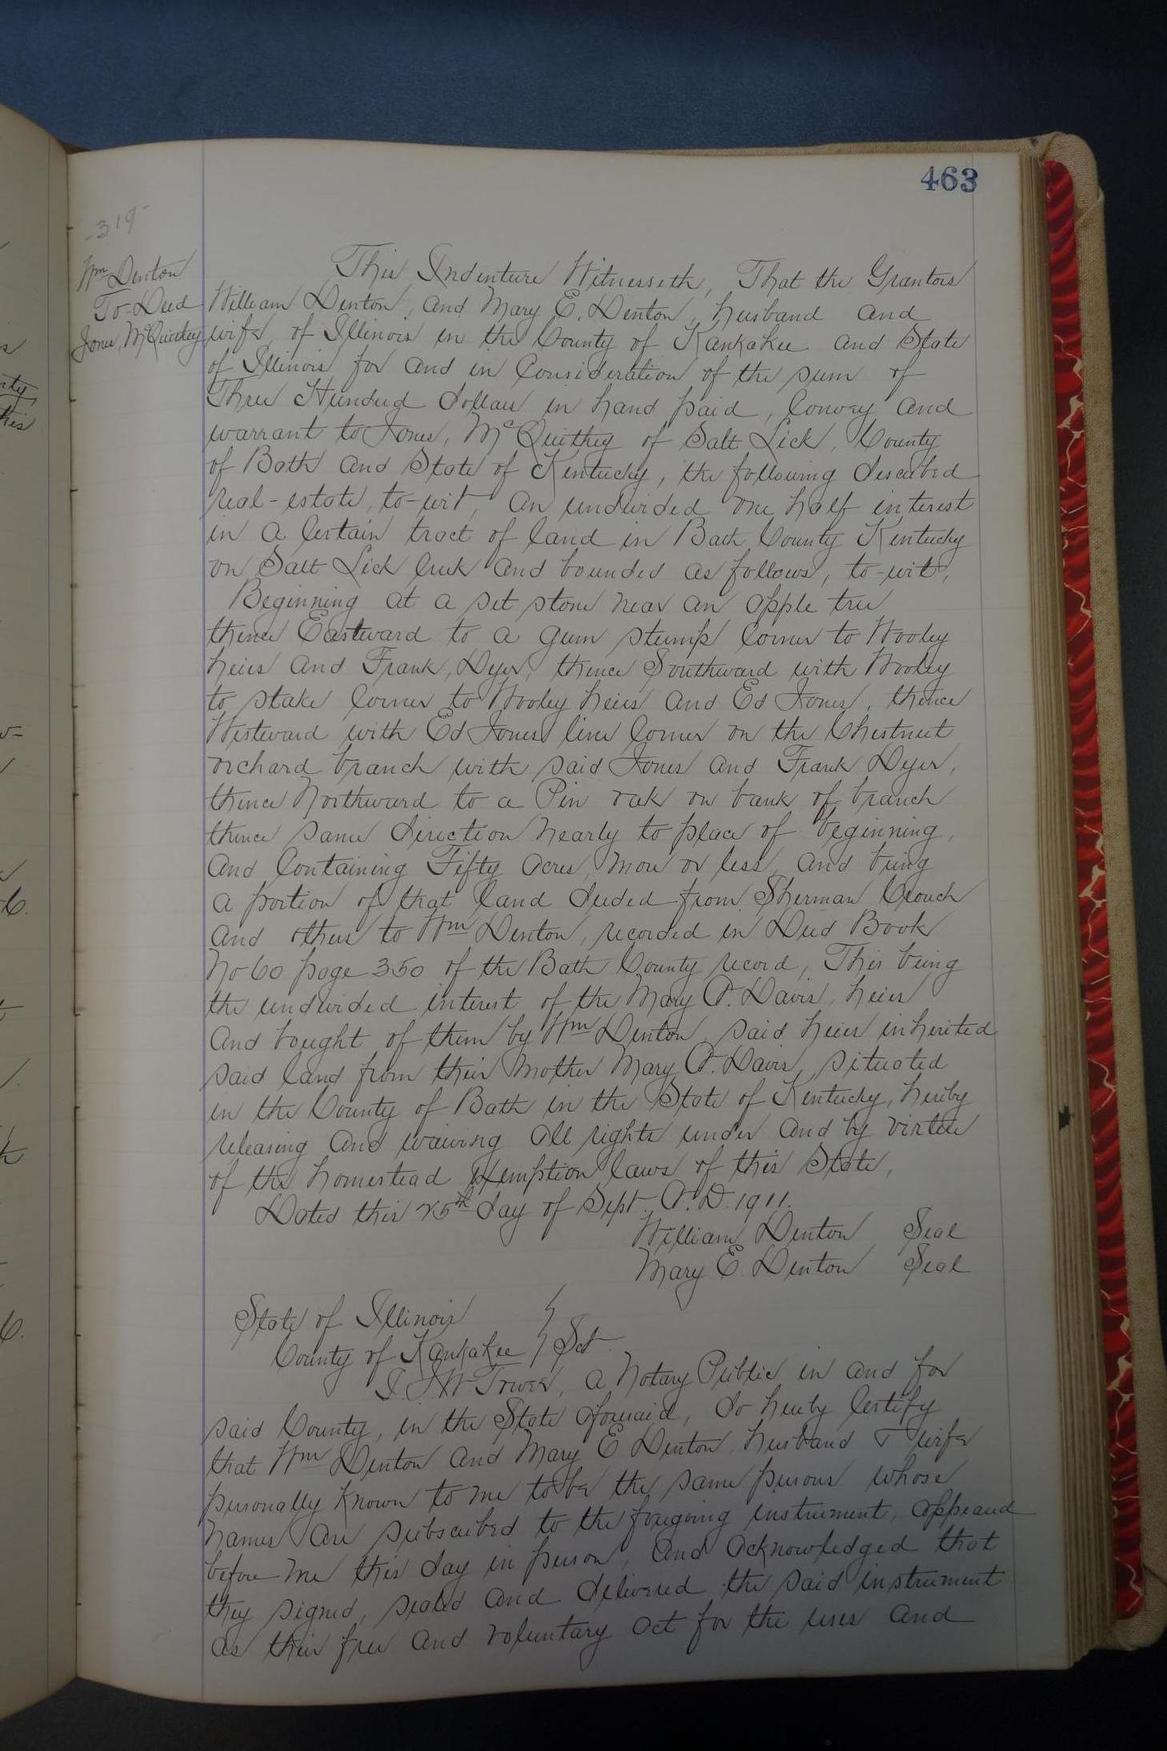 463
-319-
Wm Denton
To-Deed
Jones, McQuithey
This Indenture Witnesseth, That the Grantors
William Denton, and Mary E. Denton, husband and
wife, of Illinois in the County of Kankakee and State
of Illinois for and in Consideration of the sum of
Three Hundred dollars in hand paid, Convey and
warrant to Jones, McQuithey of Salt Lick, County
of Bath and State of Kentucky, the following described
real-estate, to-wit, An undivided one half interest
in a Certain tract of land in Bath County Kentucky
on Salt Lick Creek and bounded as follows, to-wit,
Beginning at a set stone near an apple tree
thence Eastward to a gum stump Corner to Wooley
heirs and Frank, Dyer, thence Southward with Wooley
to stake Corner to Wooley heirs and Ed Jones, thence
Westward with Ed Jones line Corner on the Chestnut
orchard branch with said Jones and Frank Dyer,
thence Northward to a Pin oak on bank of branch
thence same direction nearly to place of beginning,
and Containing Fifty acres, more or less, and being
a portion of that land deeded from Sherman Crouch
and others to Wm Denton, recorded in Deed Book
No 60 page 350 of the Bath County record, This being
the undivided interest of the Mary A. Davis, heirs
and bought of them by Wm Denton, said heirs inherited
said land from their Mother Mary A. Davis, situated
in the County of Bath in the State of Kentucky, hereby
releasing and waiving all rights under and by virtue
of the homestead Exemption laws of this State,
Dated this 25th day of Sept, A.D. 1911.
William Denton Seal
Mary E. Denton Seal
State of Illinois
County of Kankakee } Sct
I J.W. Tower, a Notary Public in and for
said County, in the State aforesaid, do hereby Certify
that Wm Denton and Mary E Denton, husband & wife
personally known to me to be the same persons whose
names are subscribed to the foregoing instrument, appeared
before me this day in person, and acknowledged that
they signed, sealed and delivered the said instrument
as their free and voluntary act for the uses and